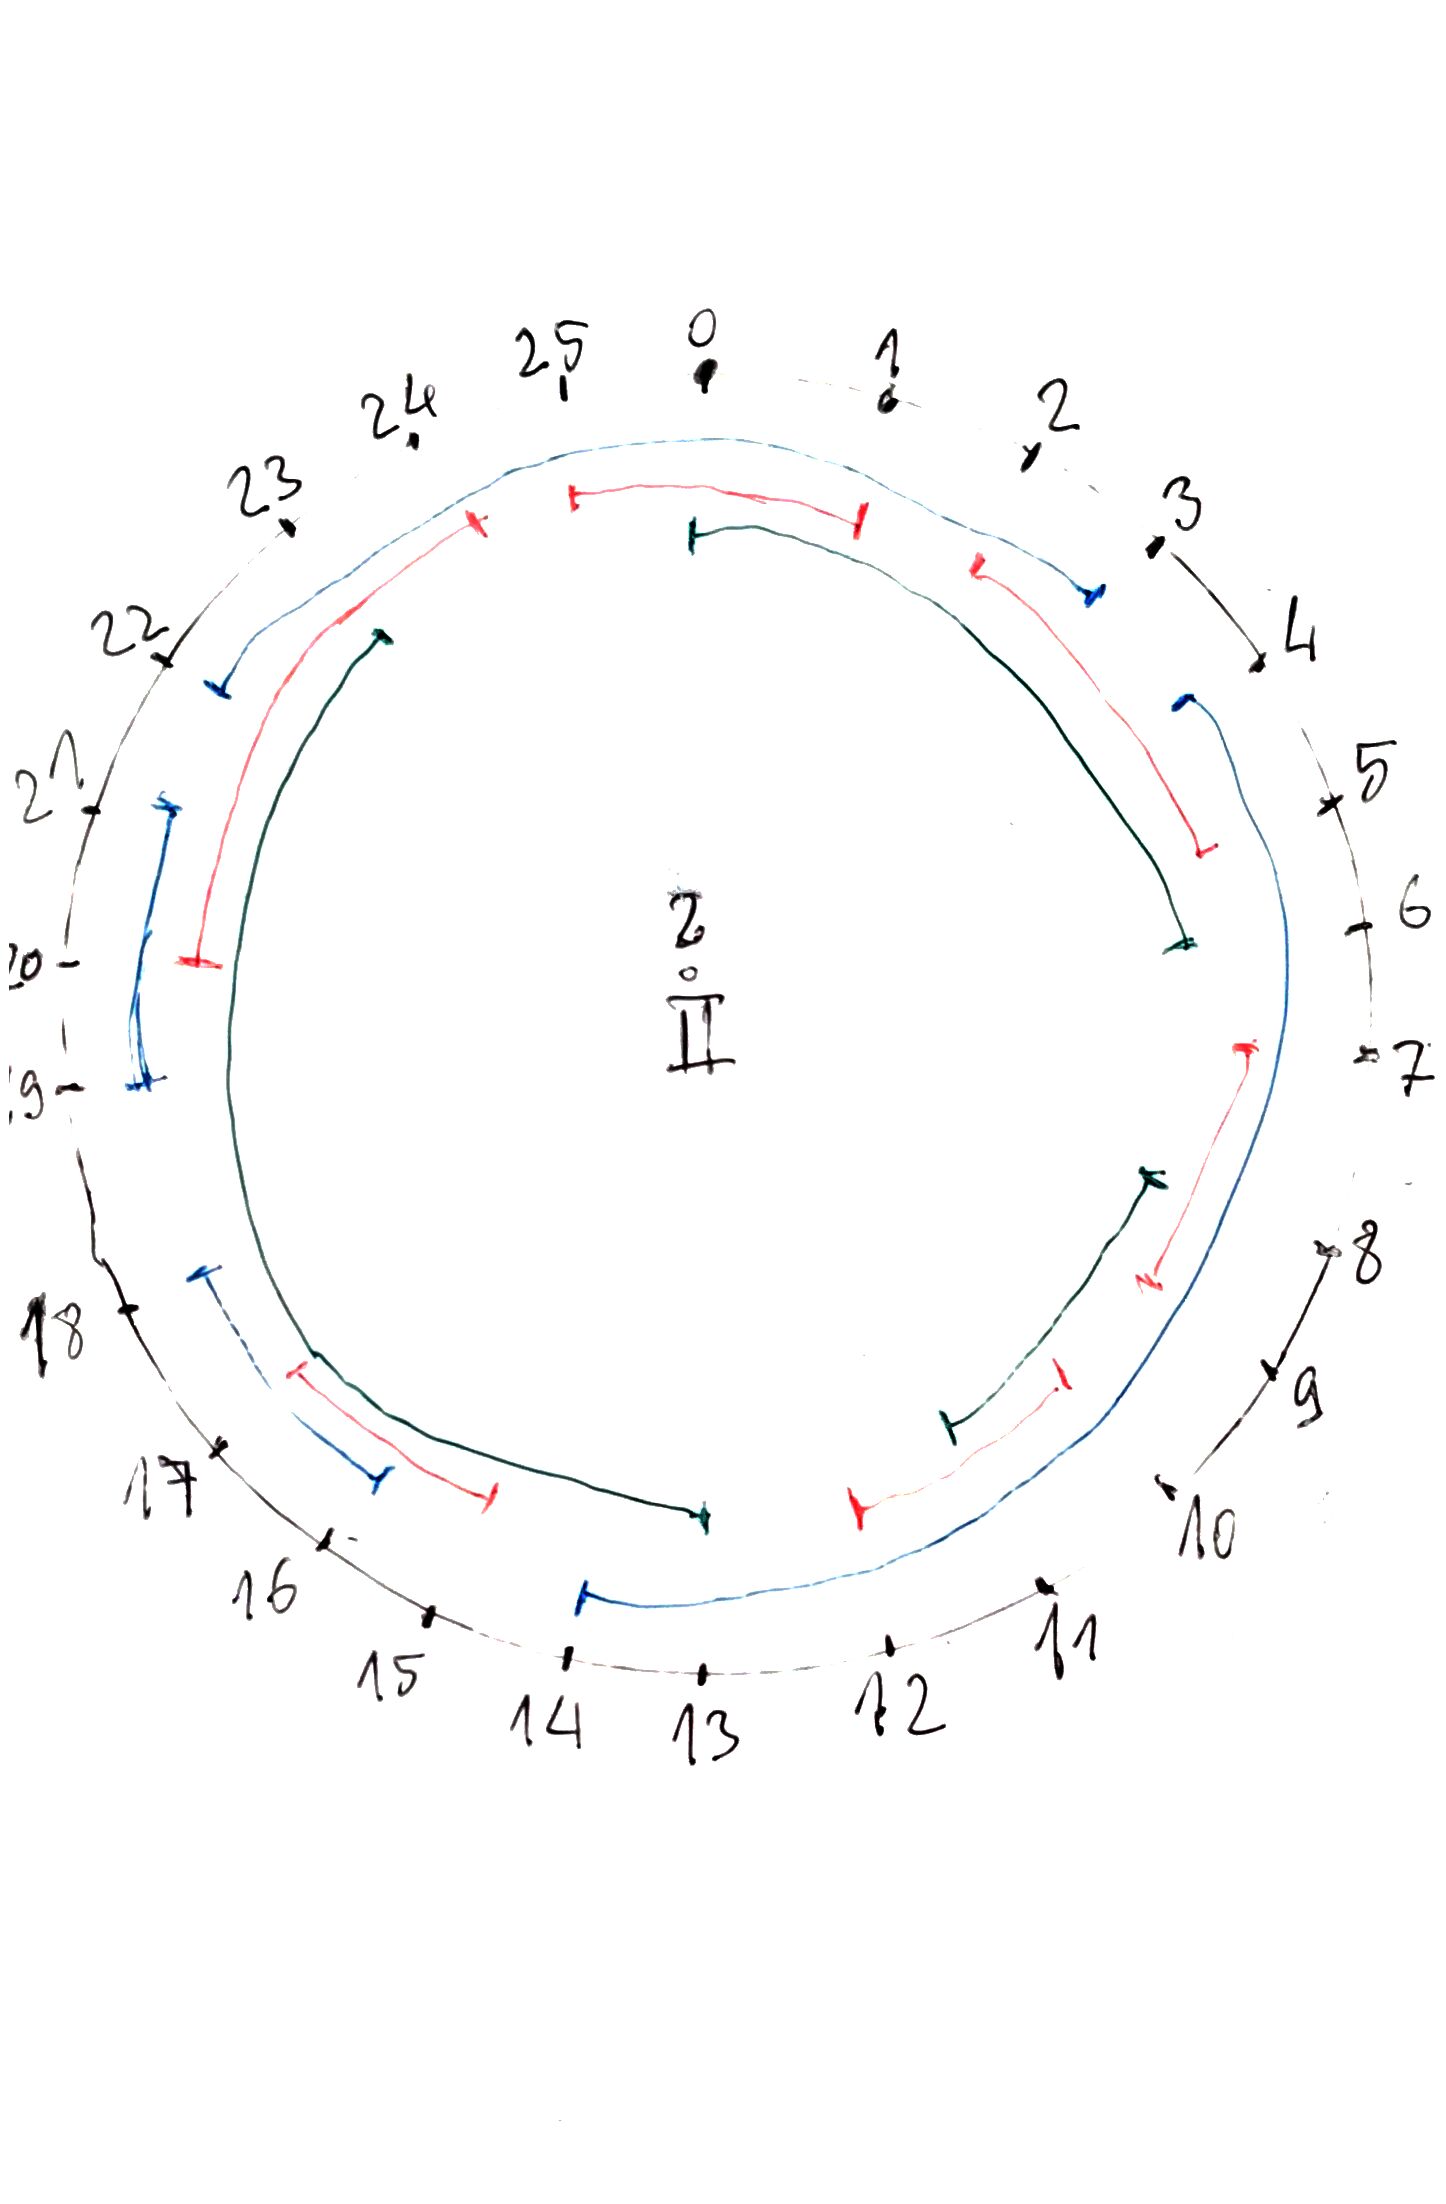 0
1
2
3
4
5
6
7
8
9
10
11
12
13
14
15
16
17
18
21
22
23
24
25